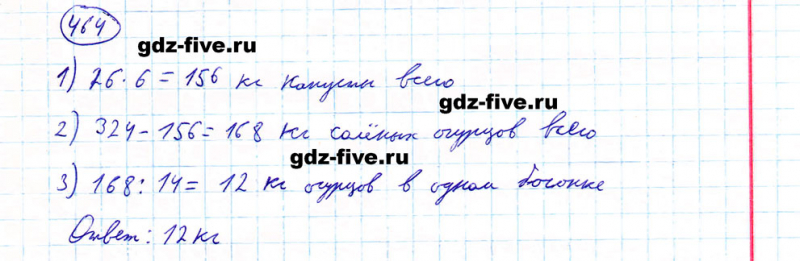 464
gdz-five.ru
1) 26 · 6 = 156 кг капусты всего
gdz-five.ru
2) 324 - 156 = 168 кг солёных огурцов всего
gdz-five.ru
3) 168 : 14 = 12 кг огурцов в одном бочонке
Ответ: 12 кг